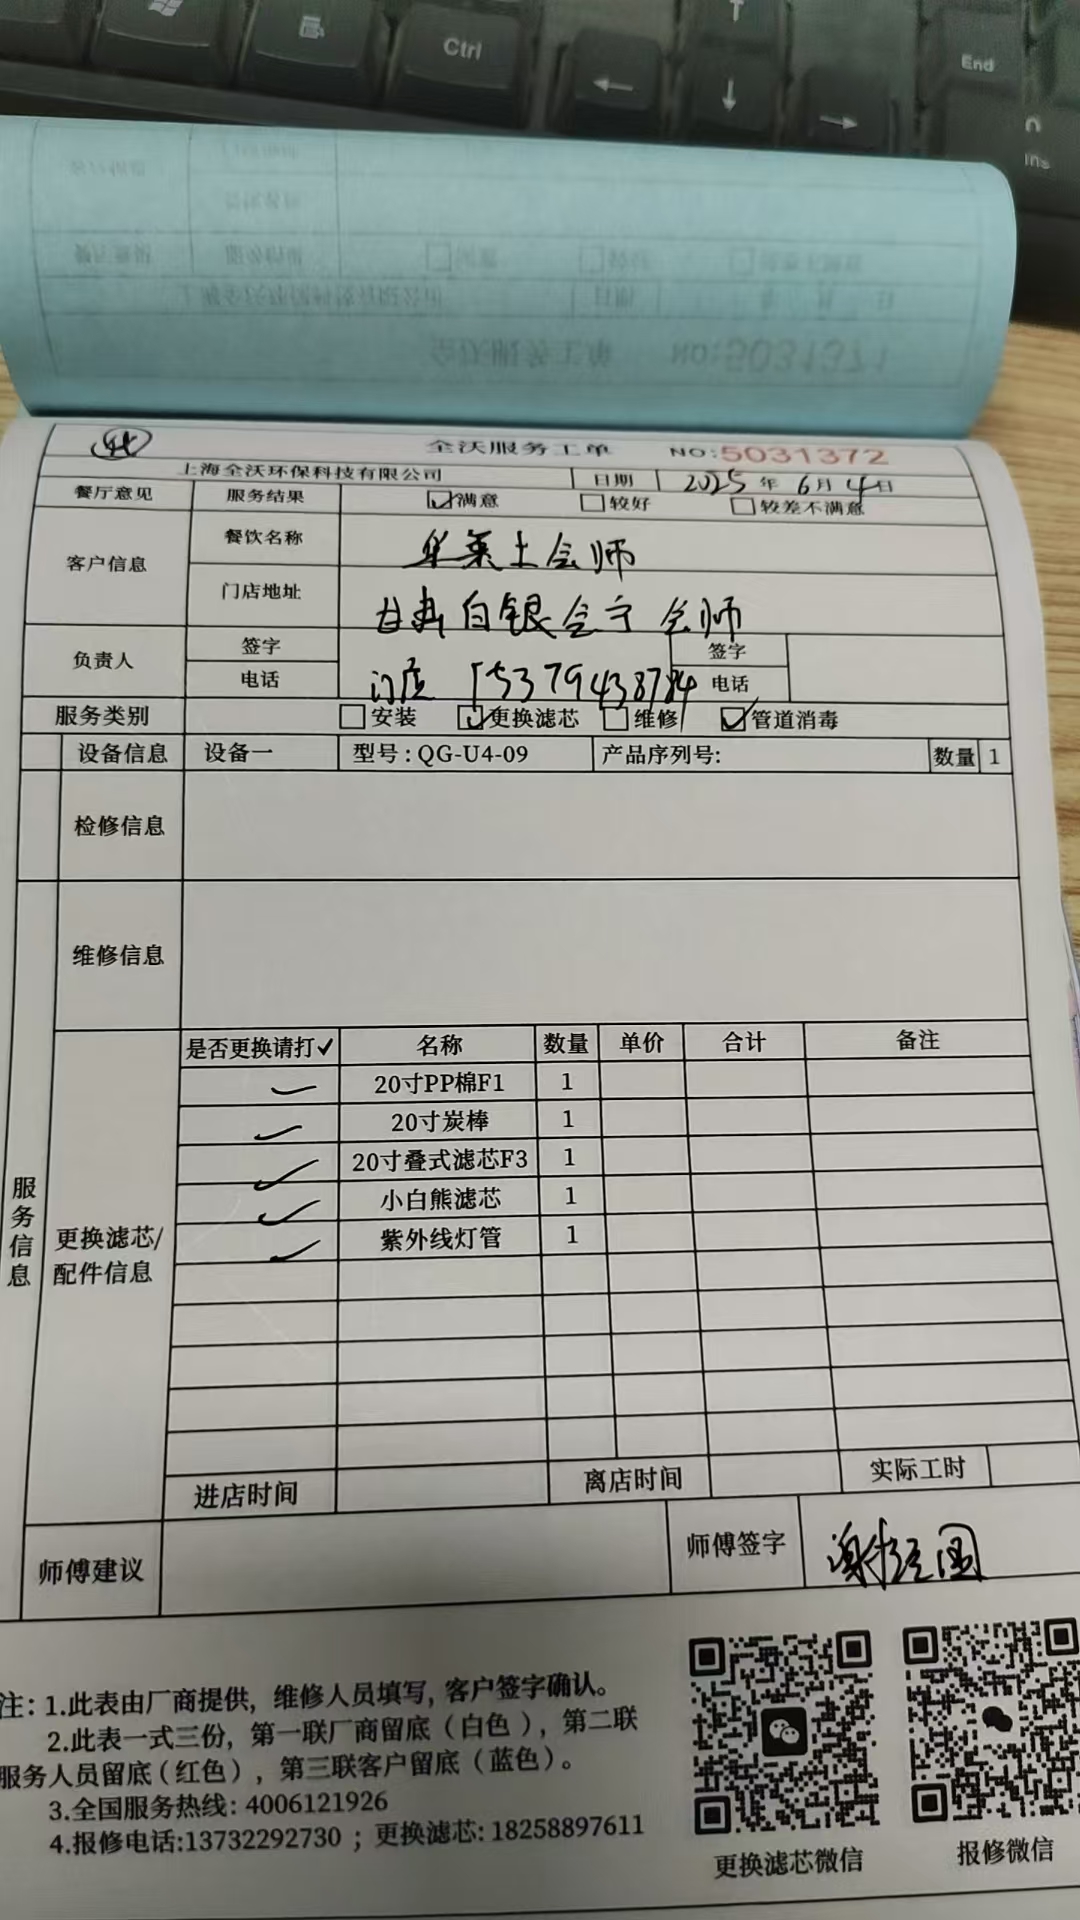 Ctrl
End
Ins
全沃服务工单 NO:5031371
全沃服务工单 NO:5031372
上海全沃环保科技有限公司 日期 2025年6月4日
餐厅意见 服务结果 ☑满意 □较好 □较差不满意
客户信息 餐饮名称 华莱士会师
门店地址 甘肃白银会宁会师
负责人 签字 签字
电话 门店 15379438784 电话
服务类别 □安装 ☑更换滤芯 □维修 ☑管道消毒
设备信息 设备一 型号:QG-U4-09 产品序列号: 数量 1
检修信息
维修信息
服务信息
更换滤芯/配件信息
是否更换请打✓ 名称 数量 单价 合计 备注
✓ 20寸PP棉F1 1
✓ 20寸炭棒 1
✓ 20寸叠式滤芯F3 1
✓ 小白熊滤芯 1
✓ 紫外线灯管 1
进店时间 离店时间 实际工时
师傅建议 师傅签字
注: 1.此表由厂商提供, 维修人员填写, 客户签字确认。
2.此表一式三份, 第一联厂商留底（白色）, 第二联
服务人员留底（红色）, 第三联客户留底（蓝色）。
3.全国服务热线: 4006121926
4.报修电话:13732292730 ; 更换滤芯: 18258897611
更换滤芯微信 报修微信